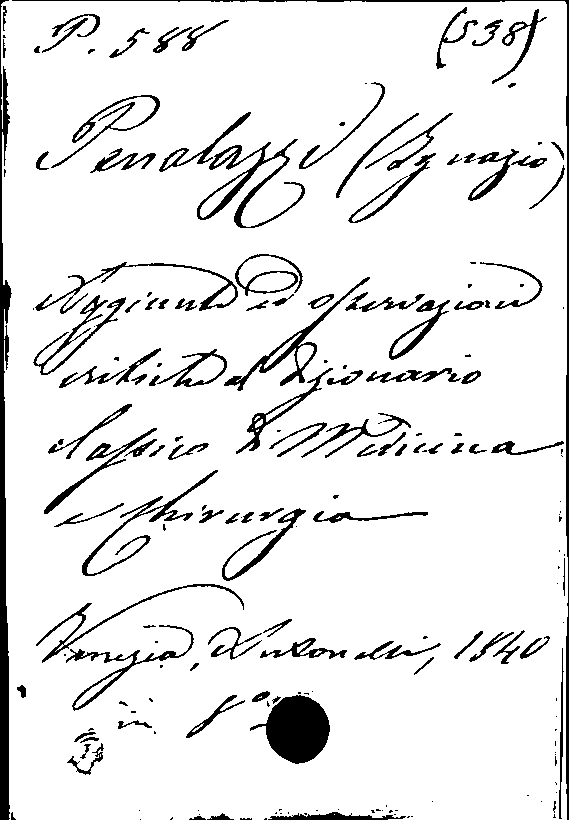 P. 588 (538)
Penolazzi (Ignazio)
Aggiunte ed osservazioni
critiche al dizionario
classico di Medicina
e Chirurgia
Venezia, Antonelli, 1840
in 8º